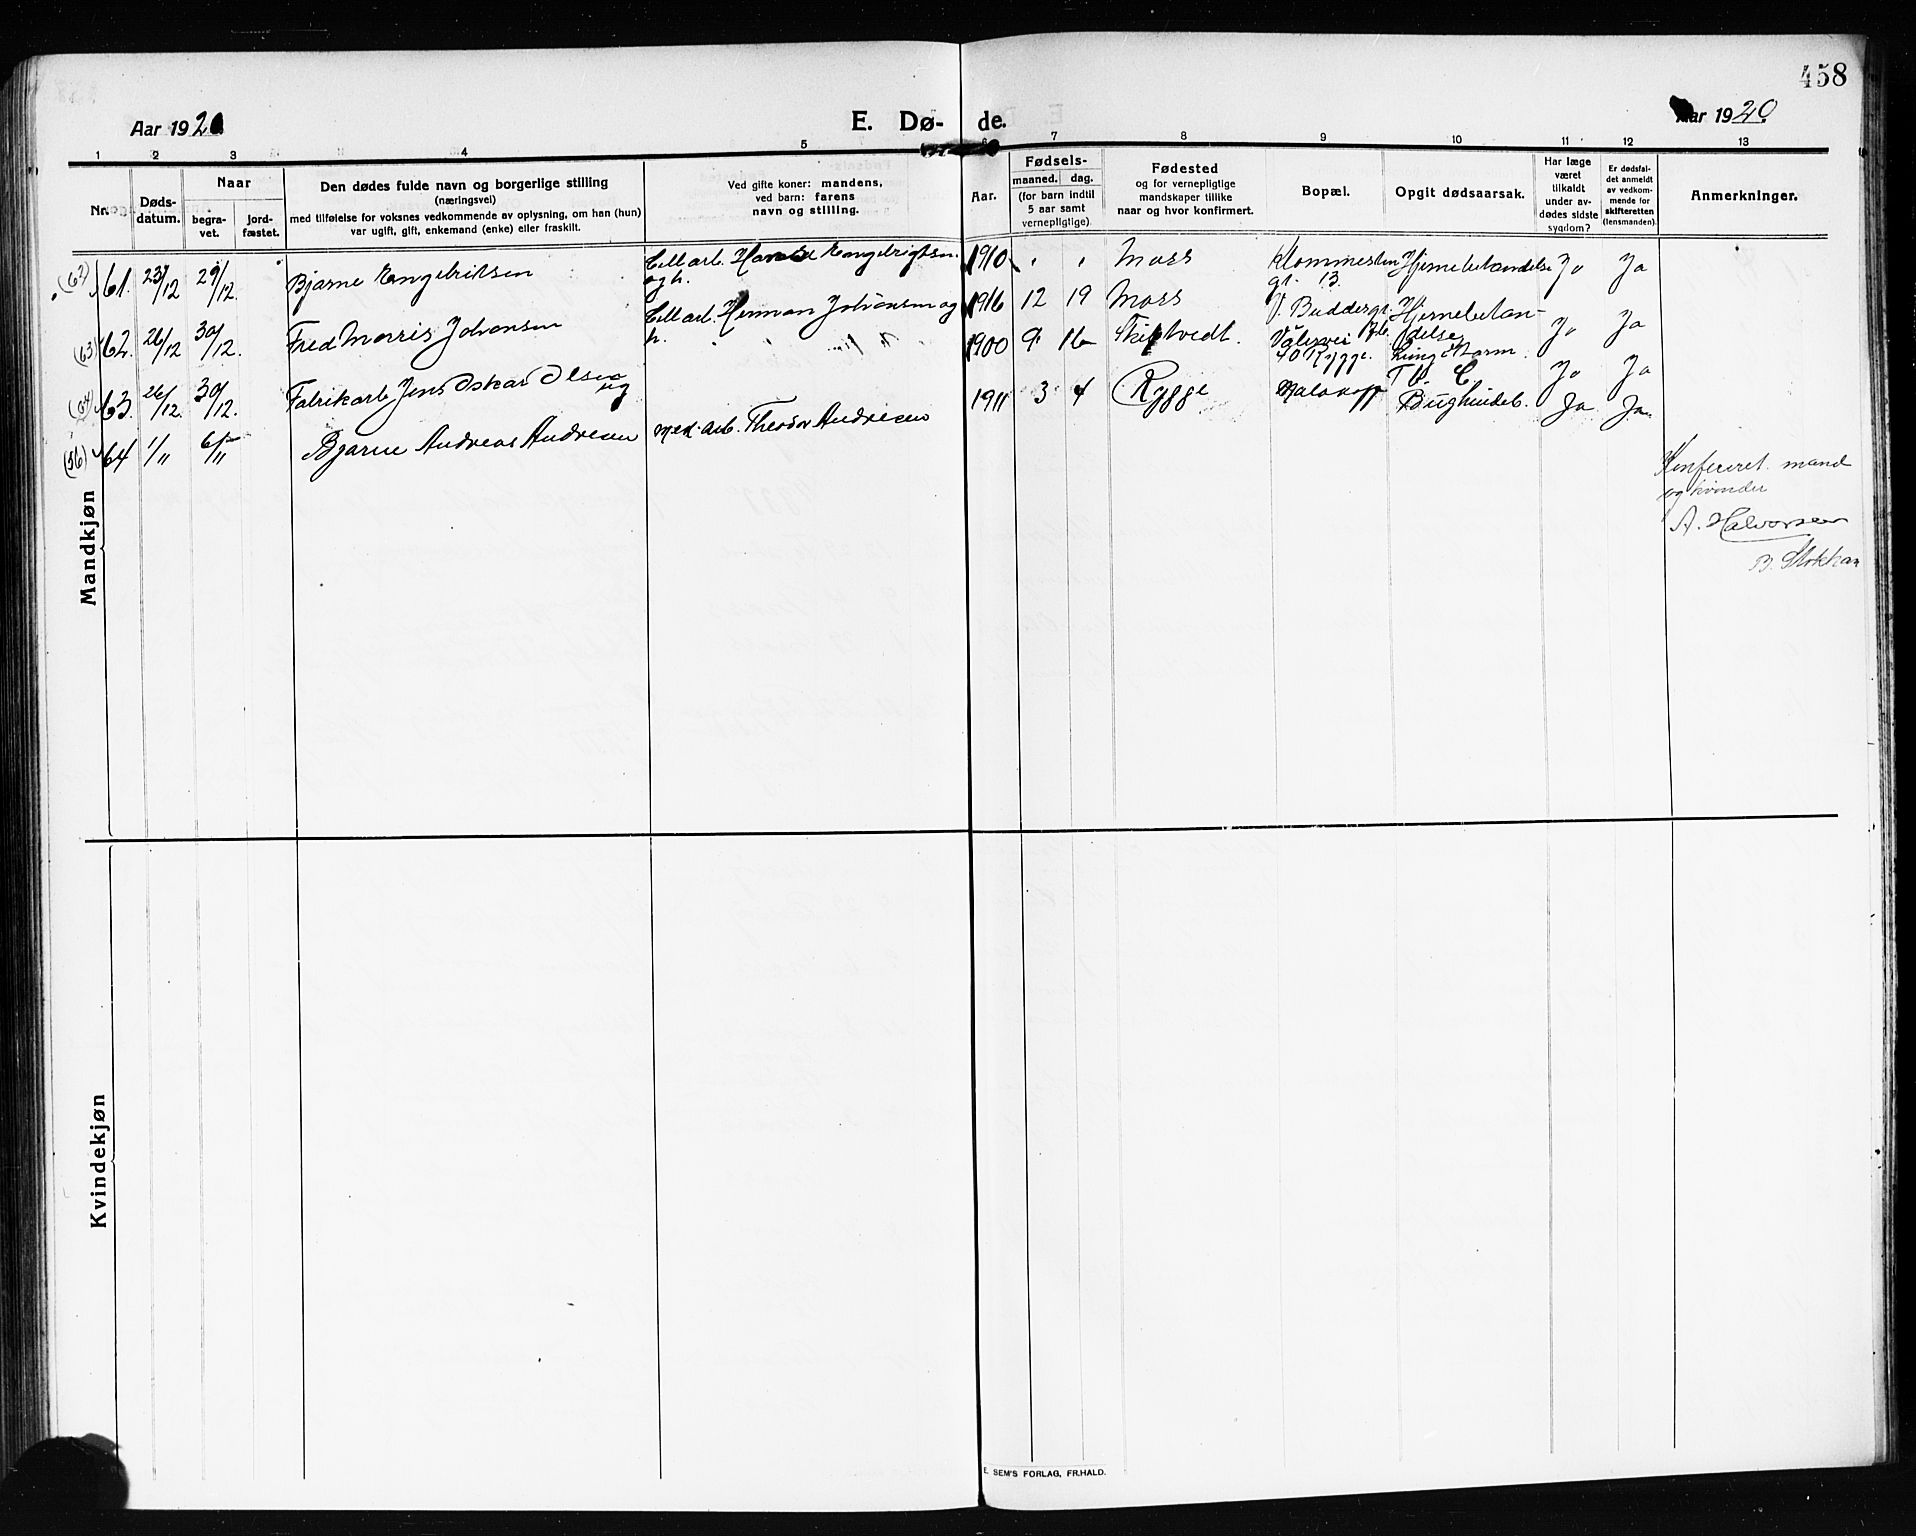 458
Aar 1920
E. Dø- de.
Aar 1920
1 2 3 4 5 6 7 8 9 10 11 12 13
Nr.
Døds-
datum.
Naar
begra-
vet.
jord-
fæstet.
Den dødes fulde navn og borgerlige stilling
(næringsvei)
med tilføielse for voksnes vedkommende av oplysning, om han (hun)
var ugift, gift, enkemand (enke) eller fraskilt.
Ved gifte koner: mandens,
ved barn: farens
navn og stilling.
Aar.
Fødsels-
maaned. dag.
(for barn indtil
5 aar samt
vernepligtige).
Fødested
og for vernepligtige
mandskaper tillike
naar og hvor konfirmert.
Bopæl.
Opgit dødsaarsak.
Har læge
været
tilkaldt
under av-
dødes sidste
sygdom?
Er dødsfal-
det anmeldt
av vedkom-
mende for
skifteretten
(lensmanden).
Anmerkninger.
Mandkjøn
(62) 61. 23/12 29/12. Bjarne Engebriktsen
Cell arb. Engebrigtsen
og h.
1910 Moss
gt. 13.
Hjernebetændelse Ja Ja
(63) 62. 26/12 30/12. Fred Morris Johansen
Cell arb. Herman Johansen og
h.
1916 12 19 Moss
Hjernebetæn-
delse Ja Ja
(64) 63. 26/12. 30/12. Fabrikarb Jens Oskar Olsen
ug
1900 9 16 Skiptvedt.
40 Rygge.
Ja Ja
(56) 64 1/11 6/11 Bjarne Andreas Andresen
Theodor Andresen
1911 3 4 Rygge Malakoff Bughindeb. Ja Ja
Konfereret mand
og kvinder
A. Halvorsen
Kvindekjøn
E. SEM'S FORLAG, FR.HALD.